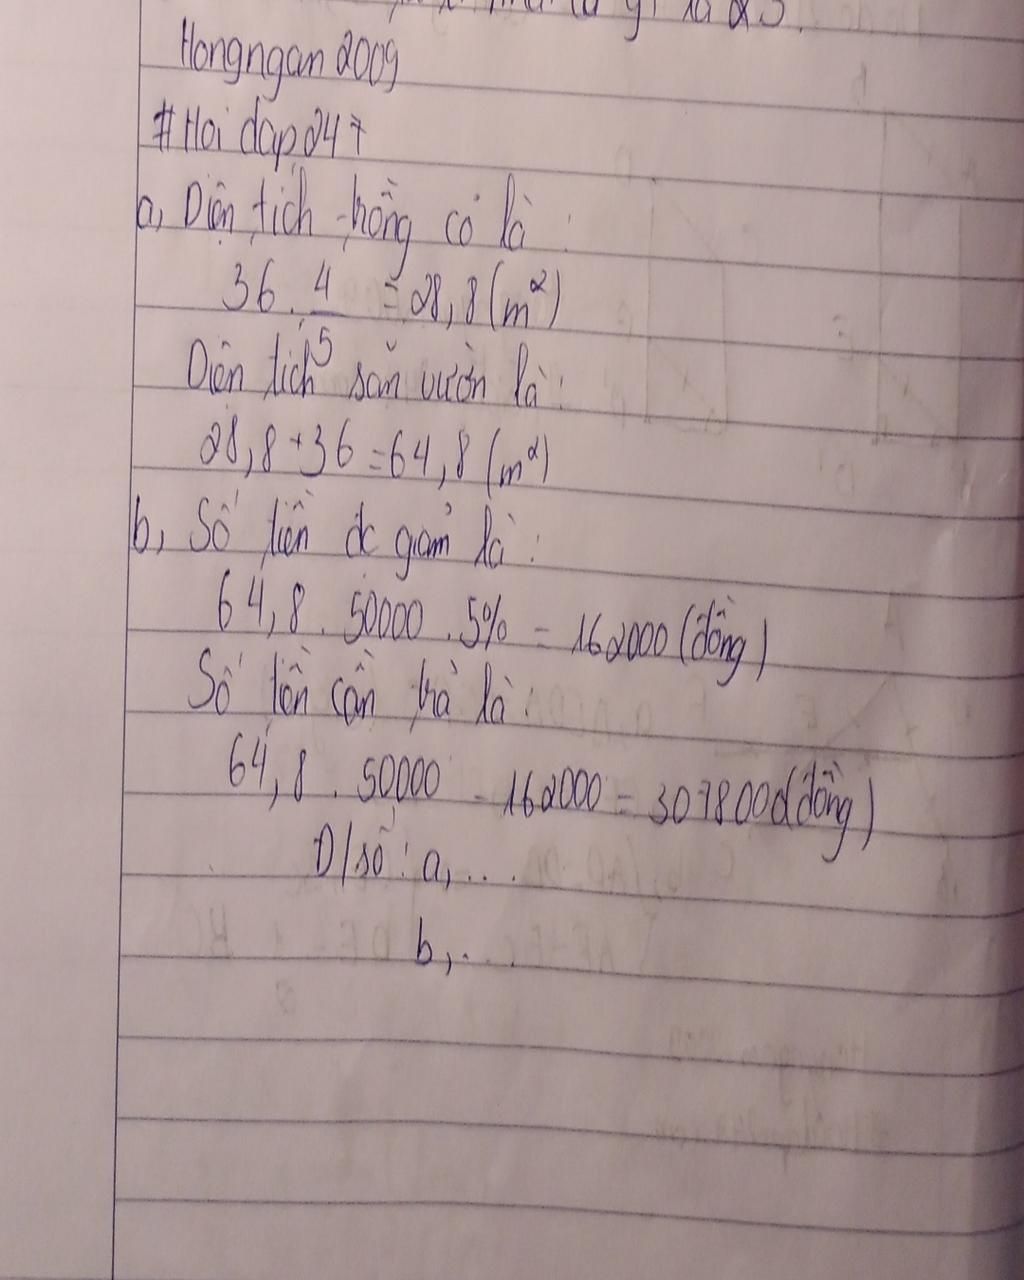 là 25.
Hongngan2009
#Hoidap247
a, Diện tích trồng cỏ là :
36 . 4/5 = 28,8 (m²)
Diện tích sân vườn là :
28,8 + 36 = 64,8 (m²)
b, Số tiền đc giảm là :
64,8 . 50000 . 5% = 162000 (đồng)
Số tiền cần trả là :
64,8 . 50000 - 162000 = 3078000 (đồng)
Đ/số : a, ...
b, ...